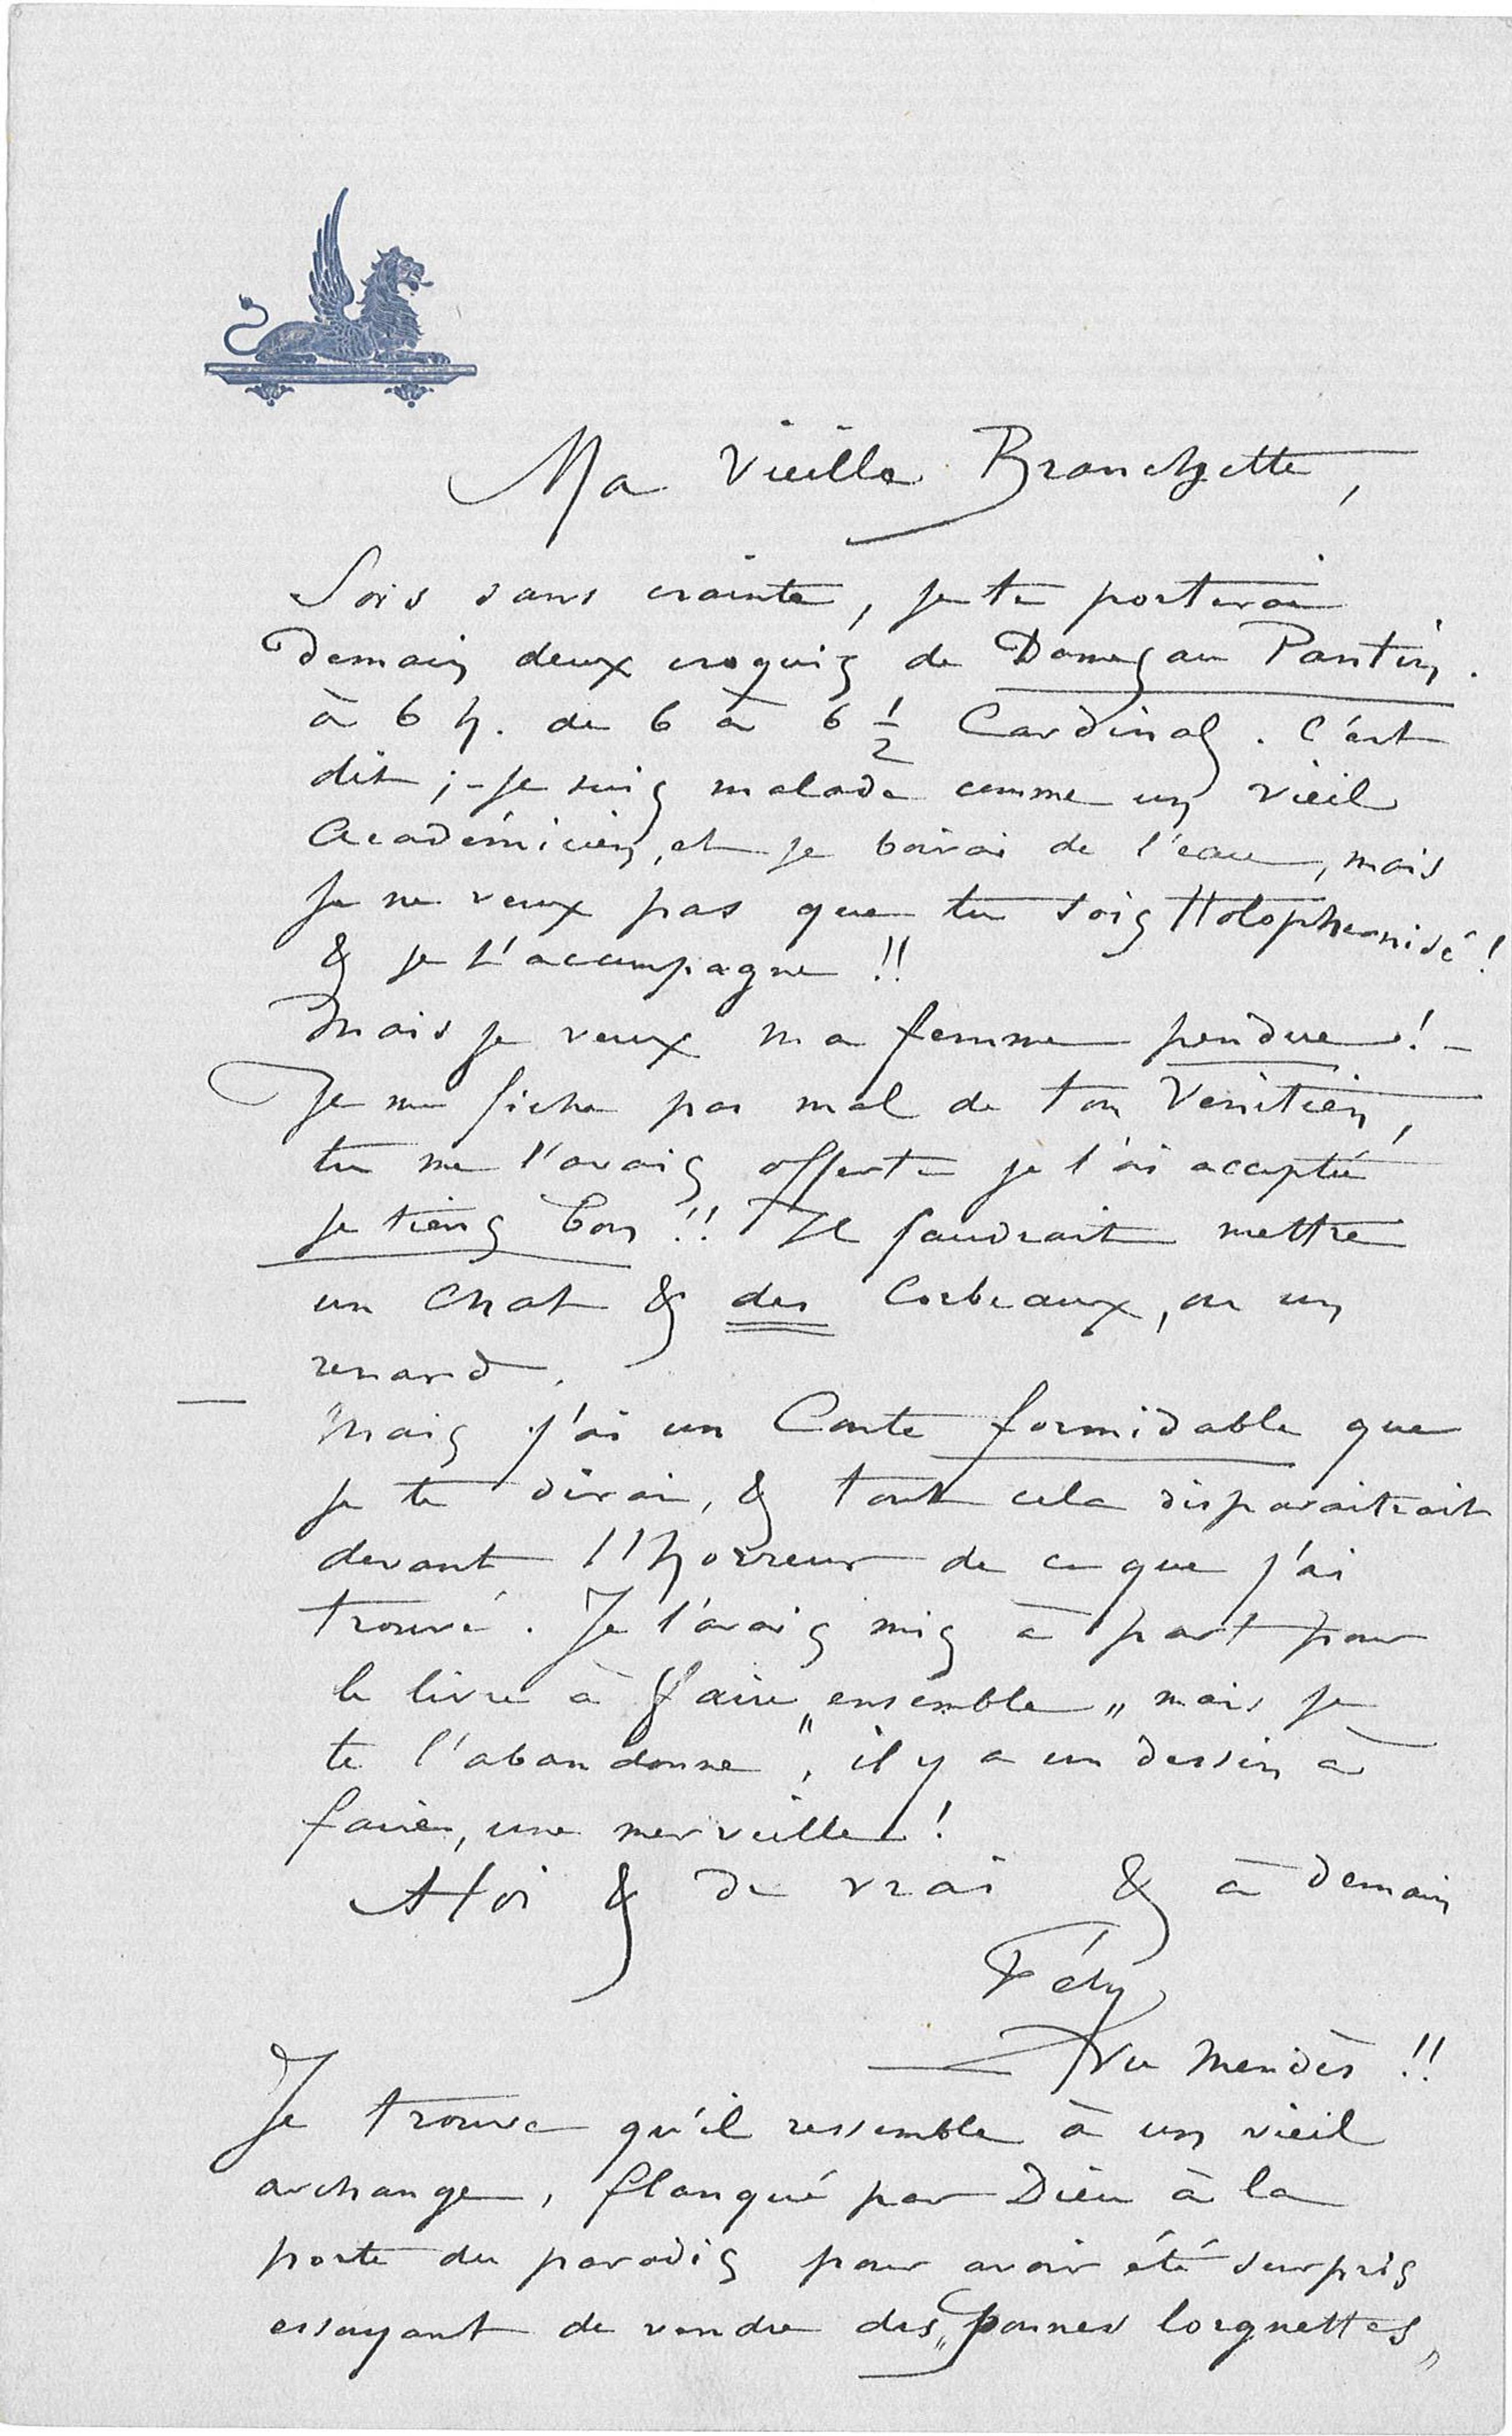 Ma Vieille Branchette,
Sois sans crainte, je te porterai
Demain deux croquis de Dames au Pantin.
à 6 h. de 6 à 6 1/2 Cardinal. C'est
dit ; - je suis malade comme un vieil
Académicien, et je boirai de l'eau, mais
je ne veux pas que tu sois Holophernisé !
& je t'accompagne !!
Mais je veux ma femme pendue ! -
Je me fiche pas mal de ton Vénitien,
tu me l'avais offerte je l'ai acceptée
je tiens bon !! Il faudrait mettre
un Chat & des Corbeaux, ou un
renard.
— Mais j'ai un Conte formidable que
je te dirai, & tout cela disparaitrait
devant l'horreur de ce que j'ai
trouvé. Je l'avais mis à part pour
le livre à faire „ensemble„ mais je
te l'abandonne, il y a un dessin à
faire, une merveille !
A toi & de vrai & à demain
Fély
— Vu Mendès !!
Je trouve qu'il ressemble à un vieil
archange, flanqué par Dieu à la
porte du paradis pour avoir été surpris
essayant de vendre des „ponnes lorgnettes„